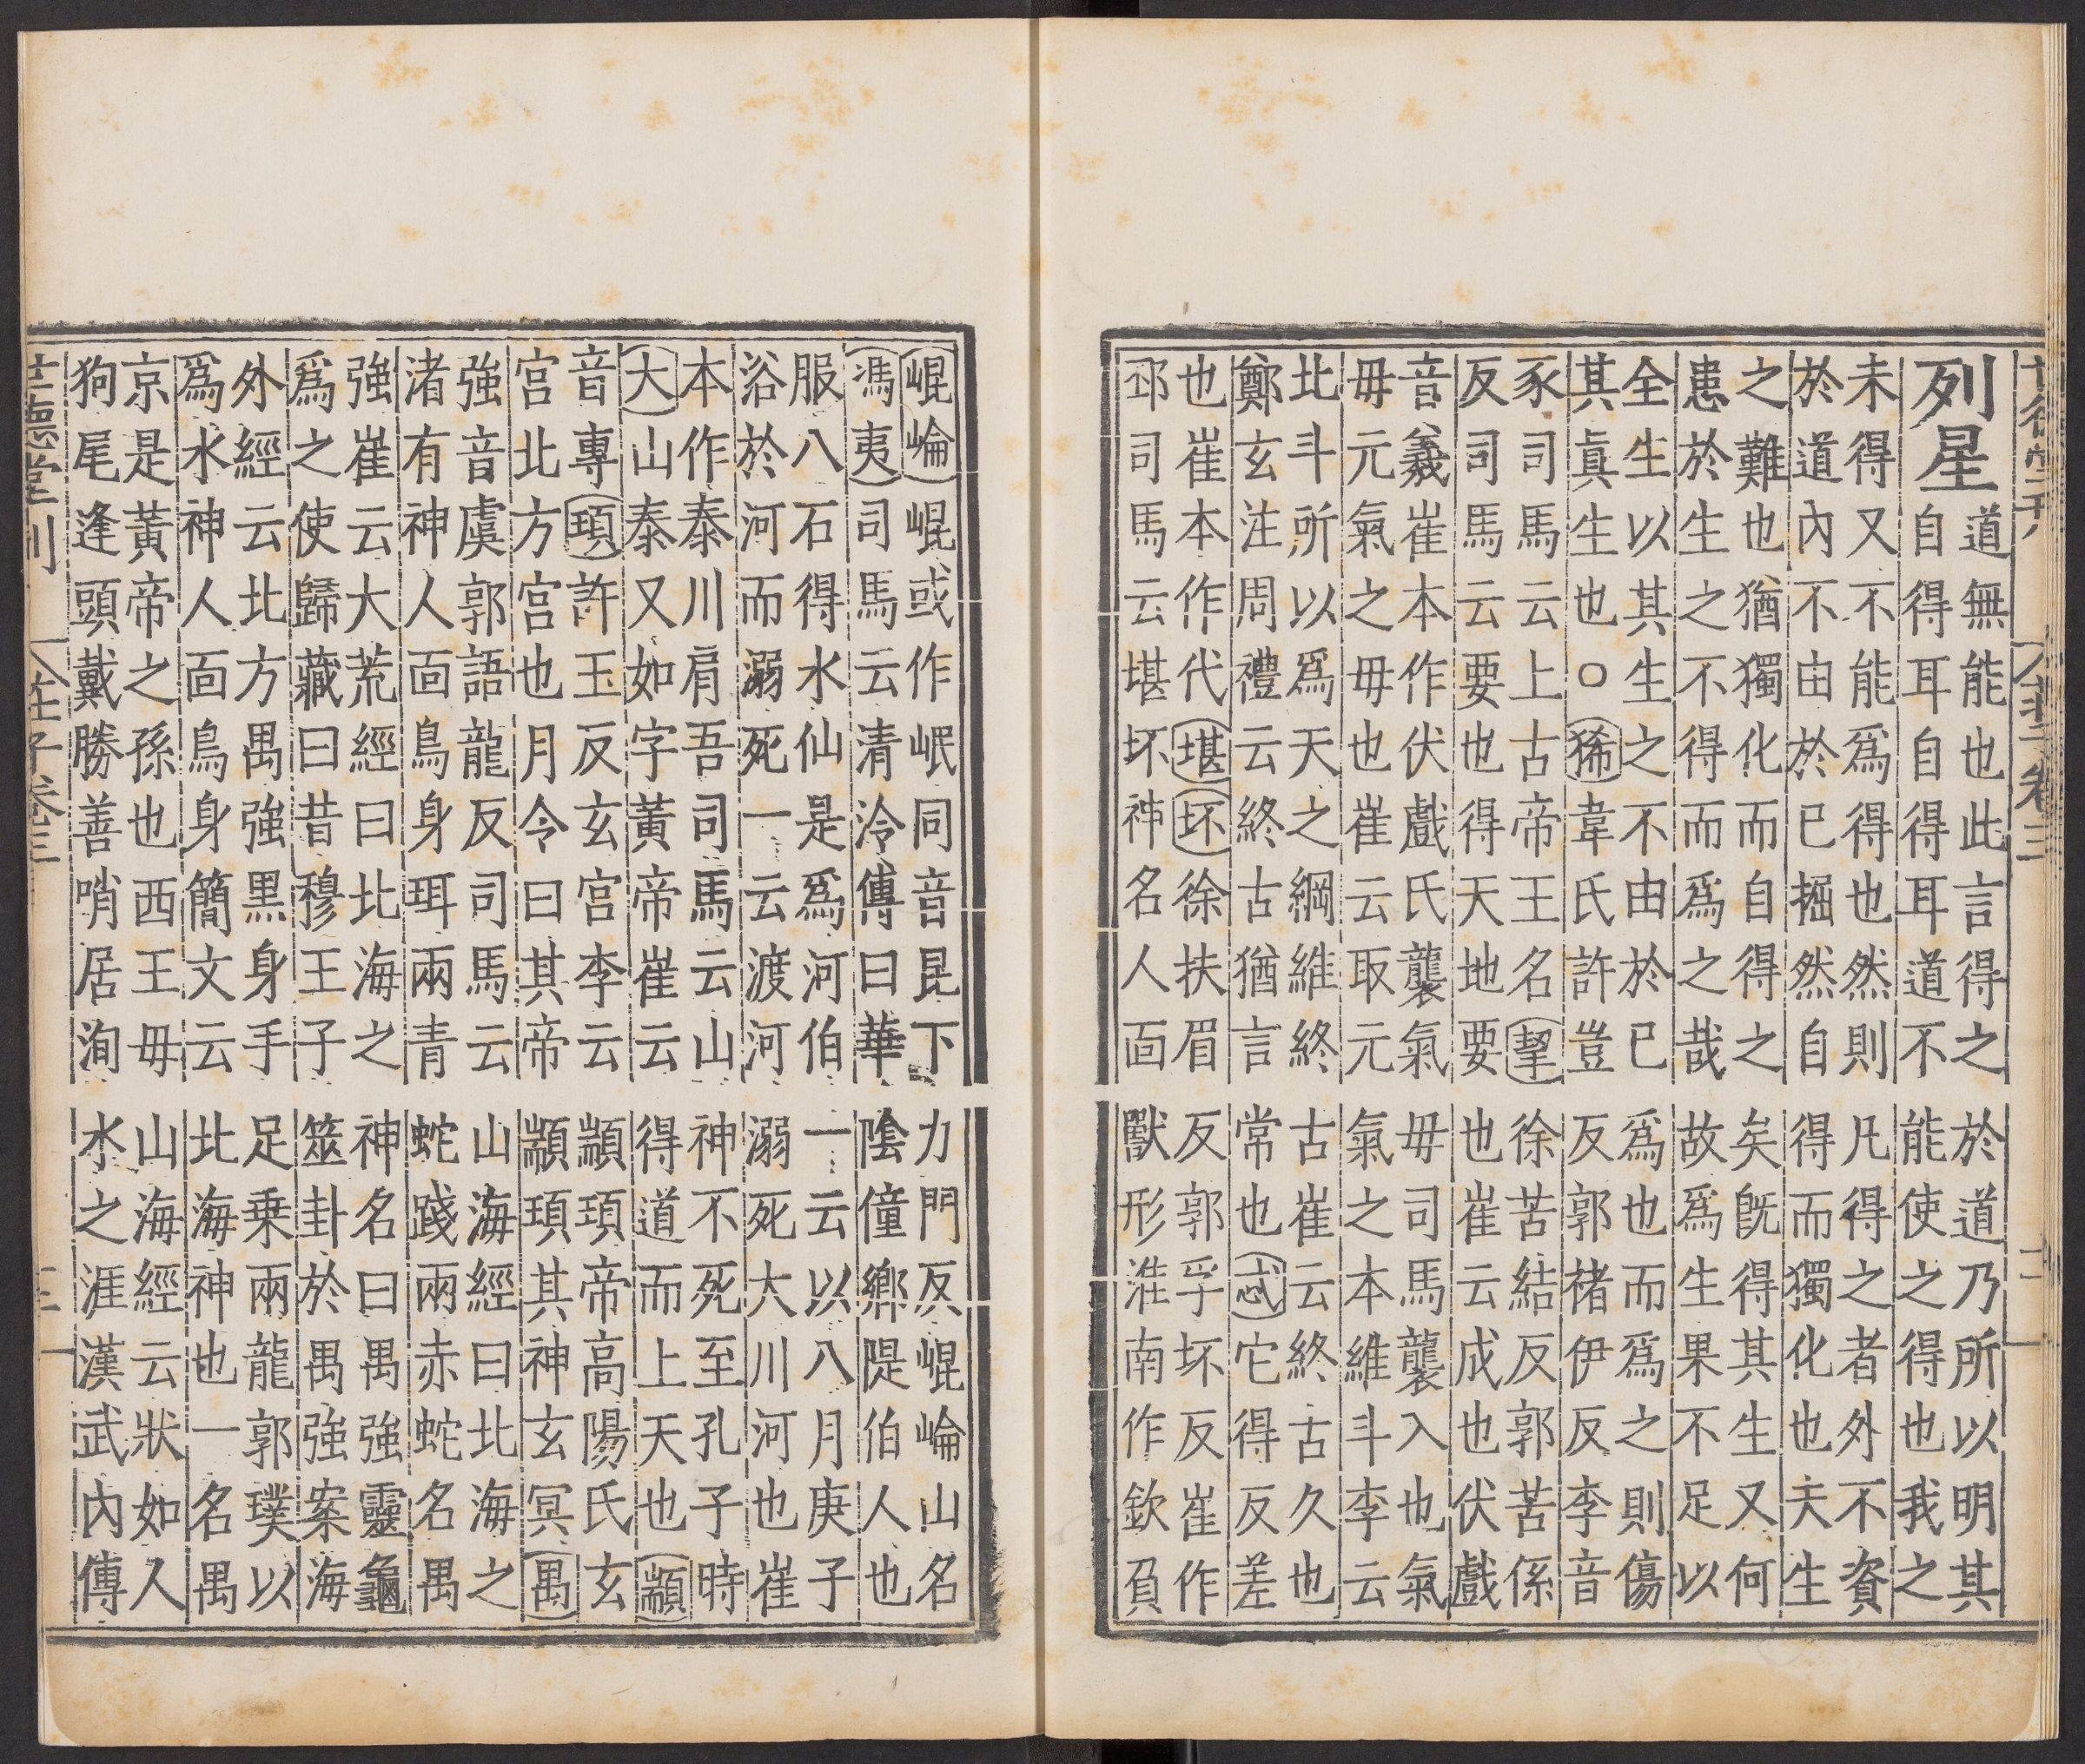 世德堂刊 莊子卷三 二
列星道無能也此言得之於道乃所以明其
自得耳自得耳道不能使之得也我之
未得又不能爲得也然則凡得之者外不資
於道內不由於已掘然自得而獨化也夫生
之難也猶獨化而自得之矣旣得其生又何
患於生之不得而爲之哉故爲生果不足以
全生以其生之不由於已爲也而爲之則傷
其眞生也○狶韋氏許豈反郭褚伊反李音
豕司馬云上古帝王名挈徐苦結反郭苦係
反司馬云要也得天地要也崔云成也伏戲
音羲崔本作伏戲氏襲氣毋司馬襲入也氣
毋元氣之毋也崔云取元氣之本維斗李云
北斗所以爲天之綱維終古崔云終古久也
鄭玄注周禮云終古猶言常也忒它得反差
也崔本作代堪坏徐扶眉反郭孚坏反崔作
邳司馬云堪坏神名人面獸形淮南作欽負
崐崘崐或作岷同音昆下力門反崐崘山名
馮夷司馬云清泠傳曰華陰僮鄉隄伯人也
服八石得水仙是爲河伯一云以八月庚子
浴於河而溺死一云渡河溺死大川河也崔
本作泰川肩吾司馬云山神不死至孔子時
大山泰又如字黃帝崔云得道而上天也顓
音專頊許玉反玄宮李云顓頊帝高陽氏玄
宮北方宮也月令曰其帝顓頊其神玄冥禺
強音虞郭語龍反司馬云山海經曰北海之
渚有神人面鳥身珥兩青蛇踐兩赤蛇名禺
強崔云大荒經曰北海之神名曰禺強靈龜
爲之使歸藏曰昔穆王子筮卦於禺強案海
外經云北方禺強黑身手足乗兩龍郭璞以
爲水神人面鳥身簡文云北海神也一名禺
京是黃帝之孫也西王毋山海經云狀如人
狗尾逢頭戴勝善哨居洵水之涯漢武內傳
世德堂刊 莊子卷三